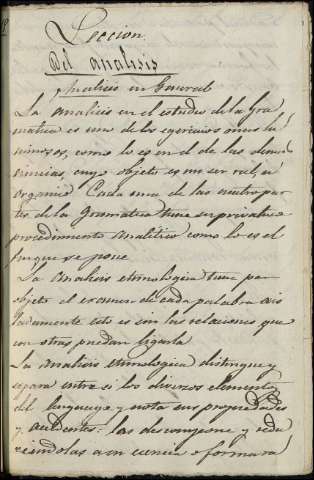 Leccion
Del analisis
Analisis en General
La Analisis en el estudio de la Gra
matica es uno de los egercicios mas lu
minosos, como lo es en el de las demas
ciencias, cuyo objeto es un ser real, u
organico Cada una de las cuatro par
tes de la Gramatica tiene su privativo
procedimiento Analitico como lo es el
fin que se pone
La Analisis etimologica tiene por
objeto el examen de cada palabra ais
ladamente esto es sin las relaciones que
con otras puedan ligarla
La Analisis etimologica distingue y
separa entre si los diversos elementos
del lenguage y nota sus propiedades
y accidentes: las descompone y redu
ciendolas a su esencia o forma ra